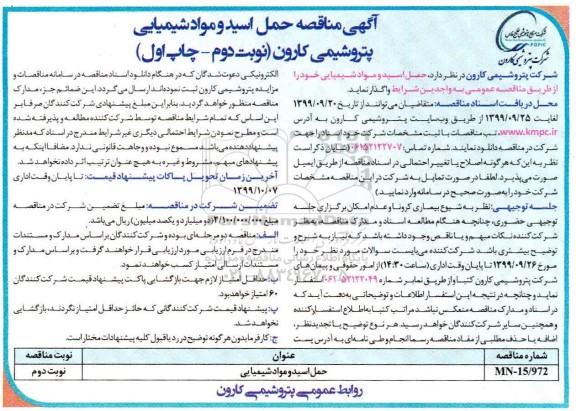 آگهی مناقصه حمل اسید و مواد شیمیایی
پتروشیمی کارون (نوبت دوم - چاپ اول)
PGPIC
شرکت پتروشیمی کارون
شرکت پتروشیمی کارون در نظر دارد، حمل اسید و مواد شیمیایی خود را
از طریق مناقصه عمومی به واجدین شرایط واگذار نماید.
محل دریافت اسناد مناقصه: متقاضیان می‌توانند از تاریخ ۱۳۹۹/۰۹/۲۰
لغایت ۱۳۹۹/۰۹/۲۵ از طریق وبسایت پتروشیمی کارون به آدرس
www.kmpc.ir
شرکت در مناقصه دانلود نمایند. شماره تماس:
نظر به این که هرگونه اصلاح یا تغییر احتمالی در اسناد مناقصه از طریق ایمیل
صورت می‌پذیرد، لطفا در صورت تمایل به شرکت در این مناقصه مشخصات
شرکت خود را به صورت صحیح در سامانه وارد نمایید)
جلسه توجیهی: نظر به شیوع بیماری کرونا و عدم امکان برگزاری جلسه
توجیهی حضوری، چنانچه هنگام مطالعه اسناد و مدارک مناقصه از نظر
شرکت کننده نکات مبهم و یا ناقص وجود داشته باشد که نیاز به شرح و
توضیح بیشتری باشد شرکت کننده می‌بایست سوالات مورد نظر خود را
مورخ ۱۳۹۹/۰۹/۲۶ تا پایان وقت اداری (ساعت ۱۴:۳۰) از امور حقوقی و پیمان های
شرکت پتروشیمی کارون کتبا و از طریق نمابر شماره
نماید و چنانچه در نتیجه این استفسار اطلاعات و توضیحاتی به دست آید که
در اسناد و مدارک مناقصه منعکس نباشد مراتب کتبا به اطلاع استفسار کننده
و همچنین سایر شرکت کنندگان خواهد رسید. هر نوع توضیح یا تجدیدنظر،
اضافه یا حذف مطلبی از مفاد مناقصه رسما انجام و طی نامه‌ای به آدرس پست
الکترونیکی دعوت شدگان که در هنگام دانلود اسناد مناقصه در سامانه مناقصات و
مزایده پتروشیمی کارون ثبت نموده‌اند ارسال می‌گردد این ضمائم جزء مدارک
مناقصه منظور خواهد گردید. بنابراین مبلغ پیشنهادی شرکت کنندگان صرفا بر
این اساس که تمام شرایط مناقصه توسط شرکت کننده مطالعه و پذیرفته شده
است و مطرح نمودن شرایط احتمالی دیگری غیر شرایط مندرج در اسناد که مدنظر
پیشنهاددهنده می‌باشد مسموع نبوده و وجاهت قانونی ندارد مضافا اینکه به
پیشنهادهای مبهم، مشروط و غیره به هیچ عنوان ترتیب اثر داده نخواهد شد.
آخرین زمان تحویل پاکات پیشنهاد قیمت: تا پایان وقت اداری
۱۳۹۹/۱۰/۰۷
تضمین شرکت در مناقصه: مبلغ تضمین شرکت در مناقصه
مبلغ (دو میلیارد و یکصد میلیون) ریال می‌باشد.
الف: مناقصه دو مرحله‌ای بوده و شرکت کنندگان بر اساس مدارک و مستندات
مندرج در فرم ارزیابی مورد ارزیابی قرار خواهند گرفت و بر اساس مدارک و
مستندات ارسالی امتیاز کسب خواهند نمود.
ب: حداقل امتیاز لازم جهت بازگشایی پاکت پیشنهاد قیمت شرکت کنندگان
۶۰ امتیاز خواهد بود.
پ: پیشنهاد قیمت شرکت کنندگانی که حائز حداقل امتیاز نگردند، بازگشایی
نخواهد شد.
ج: کارفرما بدون هر گونه توضیح در رد یا قبول کلیه پیشنهادات مختار است.
شماره مناقصه عنوان نوبت مناقصه
MN-15/972 حمل اسید و مواد شیمیایی نوبت دوم
روابط عمومی پتروشیمی کارون